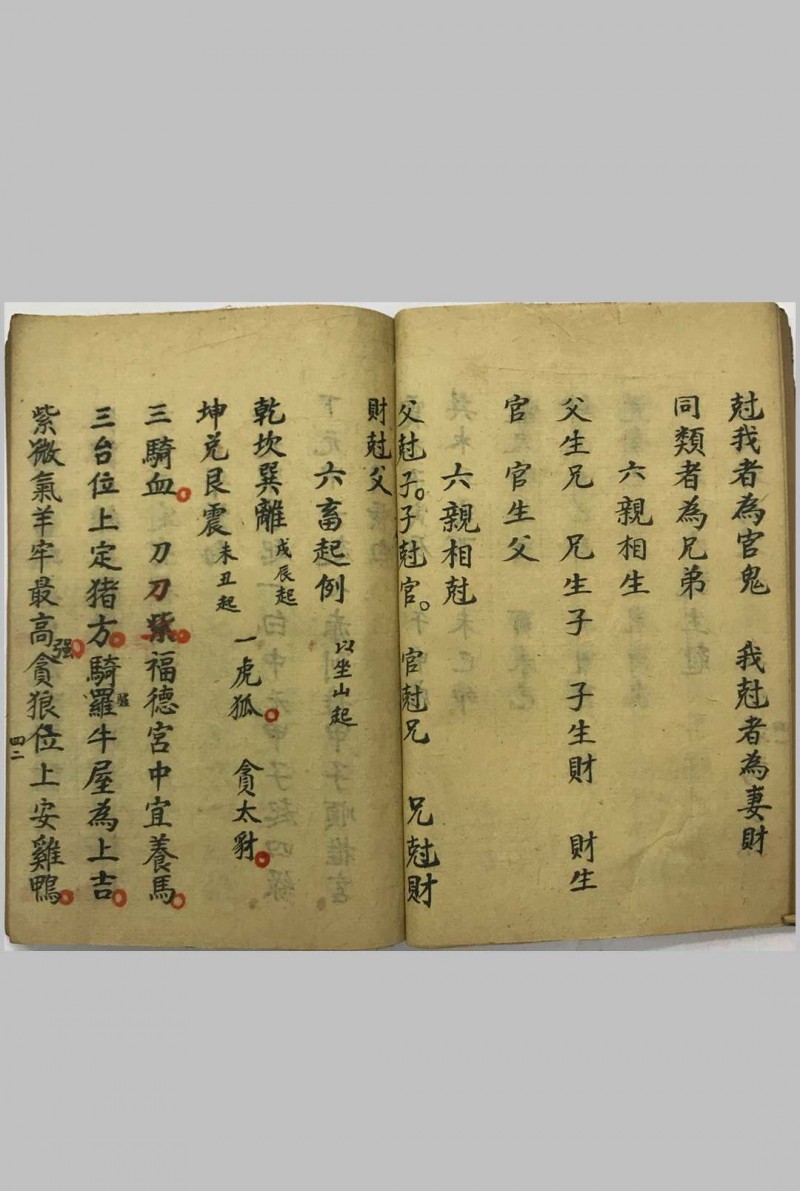 尅我者為官鬼　我尅者為妻財
同類者為兄弟
六親相生
父生兄　兄生子　子生財　財生
官　官生父
六親相尅
父尅子。子尅官。官尅兄　兄尅財
財尅父
六畜起例　以坐山起
乾坎巽離　戌辰起
坤兌艮震　未丑起　一虎狐　貪太豺
三騎血　刀刀紫福德宮中宜養馬
三台位上定猪方　騎羅牛屋為上吉
紫微氣羊牢最高強　貪狼位上安雞鴨
四二